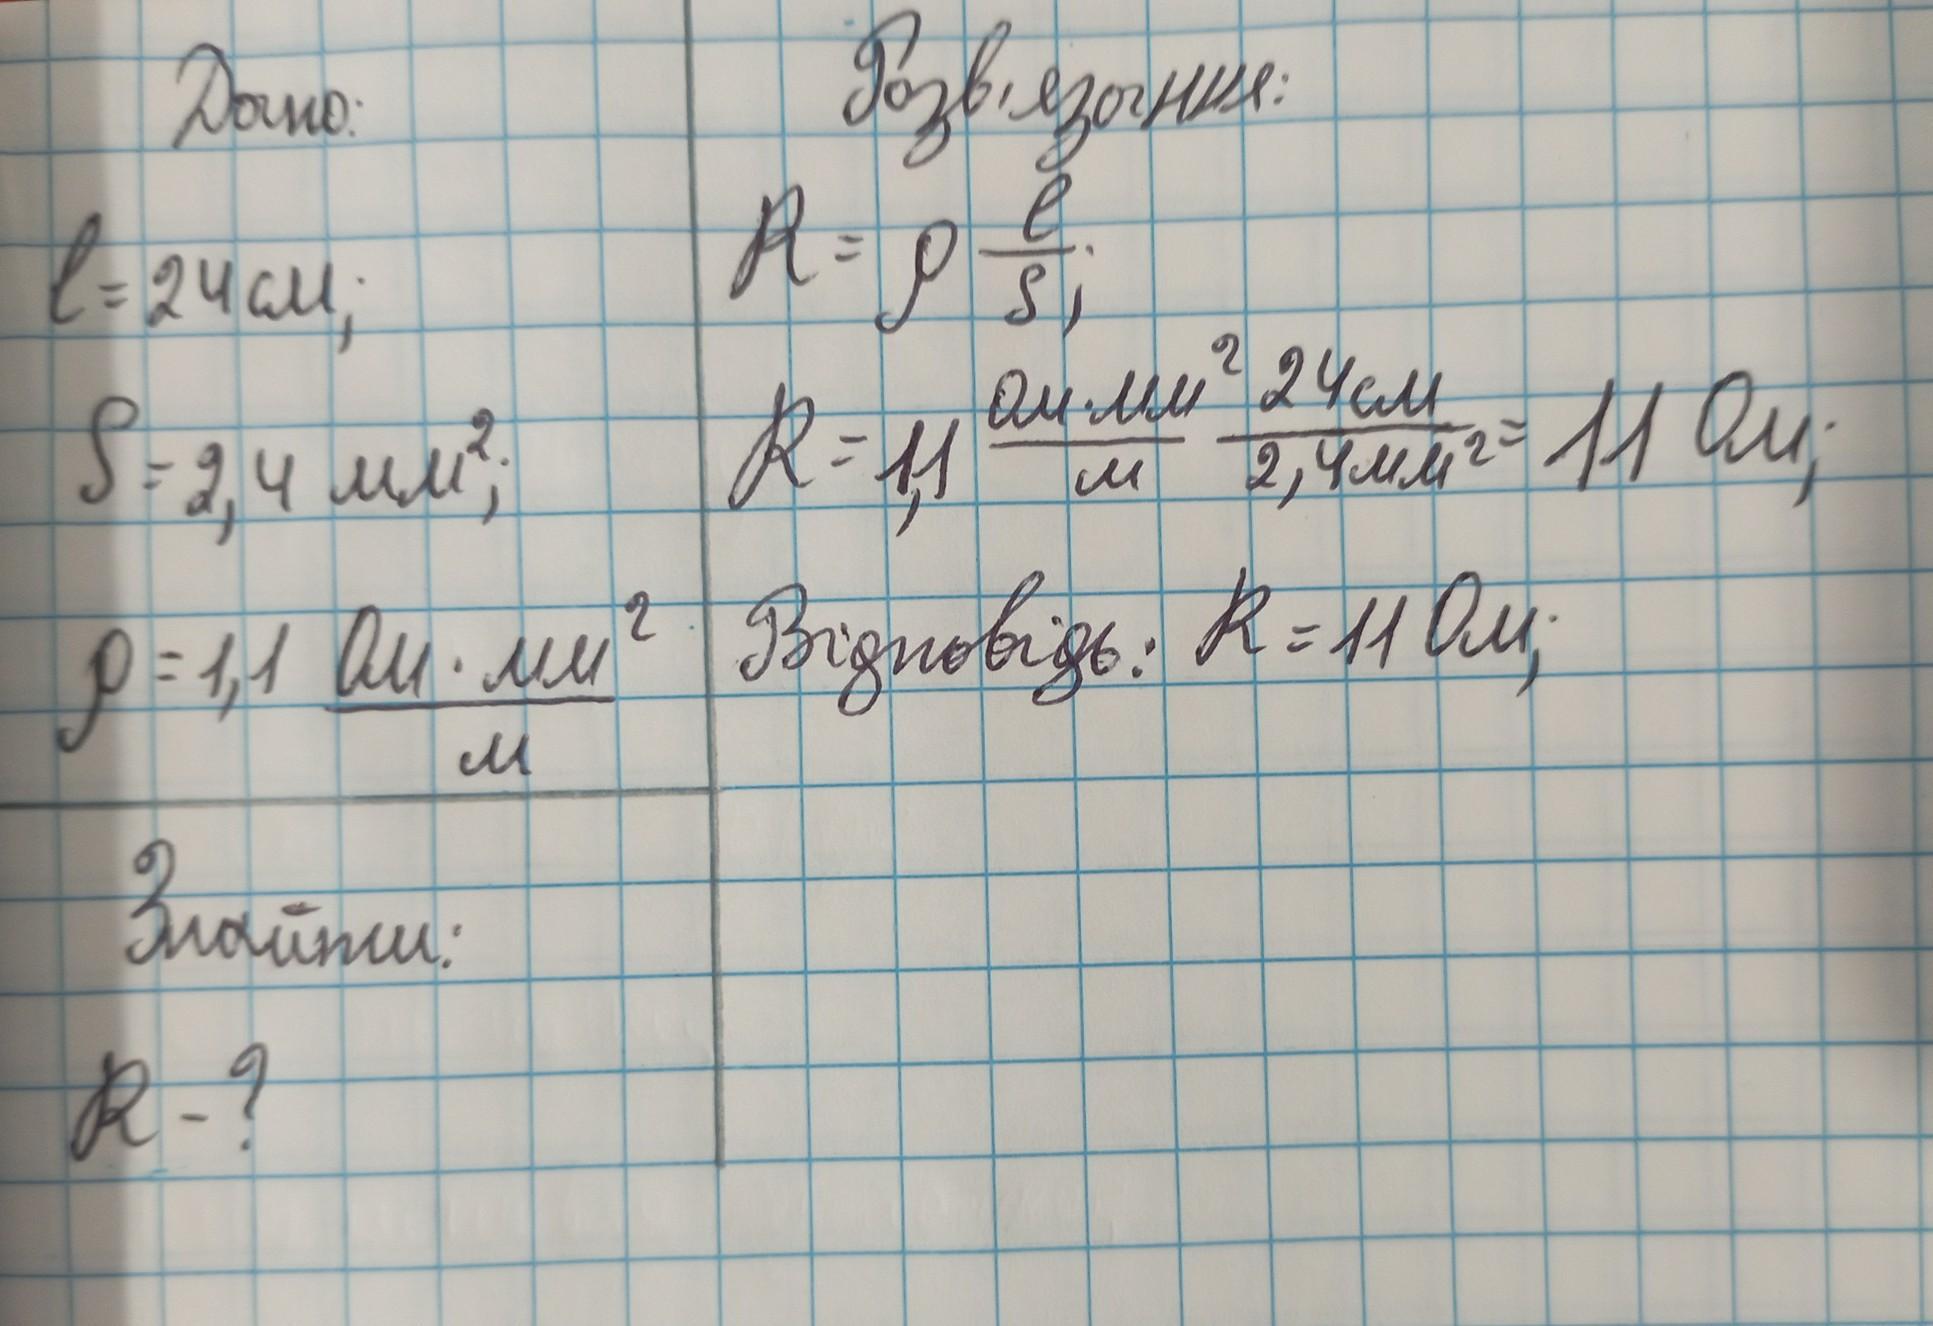 Дано:
l = 24 см;
S = 2,4 мм²;
ρ = 1,1 Ом · мм² / м
Знайти:
R - ?
Розв'язання:
R = ρ l / S;
R = 1,1 Ом · мм² / м 24 см / 2,4 мм² = 11 Ом;
Відповідь: R = 11 Ом;